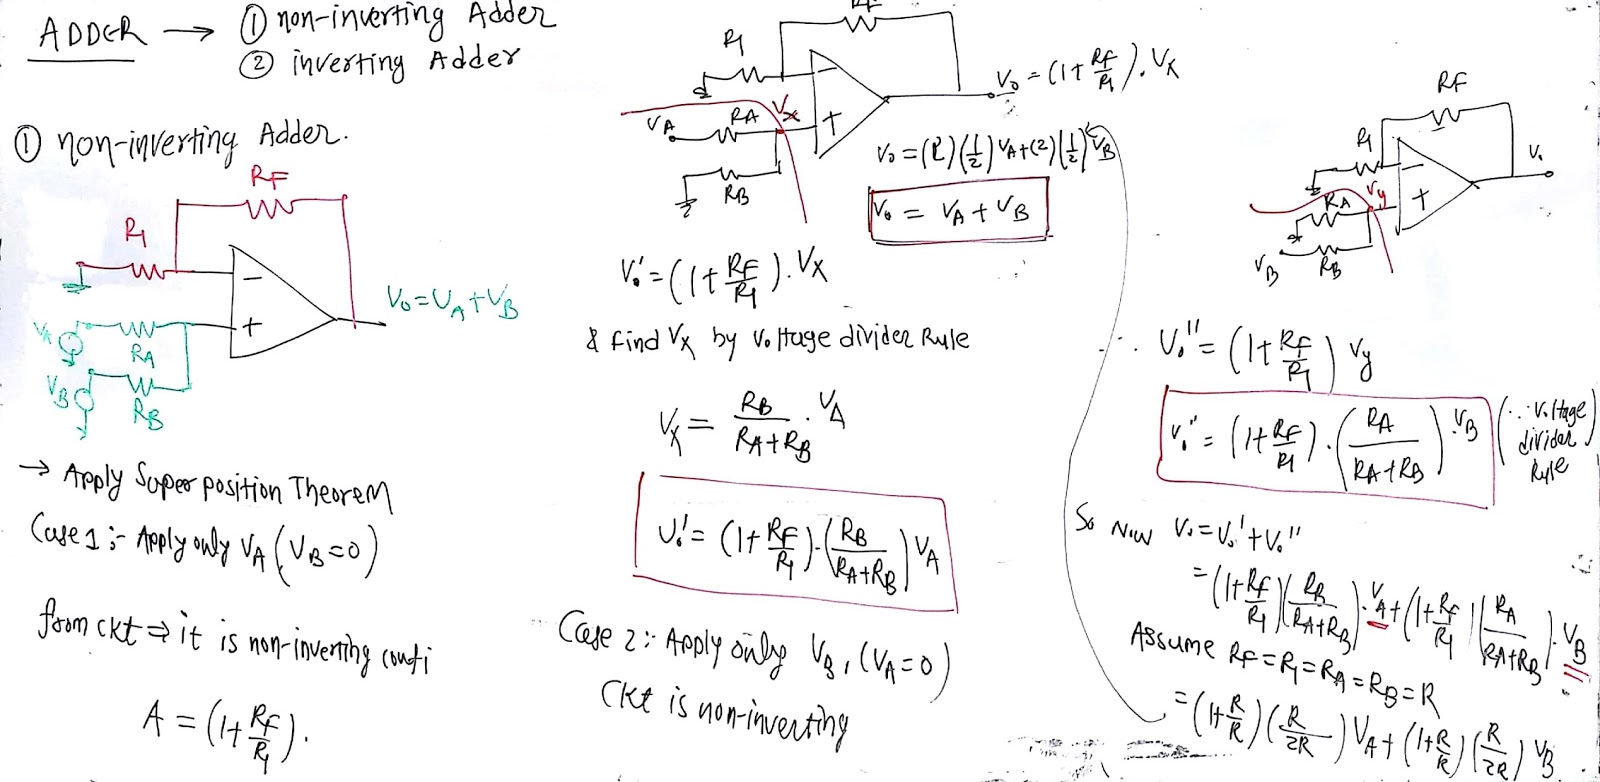 ADDER → ① non-inverting Adder
② inverting Adder
① non-inverting Adder.
RF
R1
−
+
V0 = VA + VB
VA
RA
VB
RB
→ Apply Superposition Theorem
Case 1 :- Apply only VA (VB=0)
from ckt ⇒ it is non-inverting confi
A = (1+RF/R1).
RF
R1
−
+
VA
RA
Vx
RB
V0 = (1+RF/R1).Vx
V0 = (2)(1/2)VA+(2)(1/2)VB
V0 = VA + VB
V0' = (1+RF/R1).Vx
& find Vx by Voltage divider Rule
Vx = RB/(RA+RB) . VA
V0' = (1+RF/R1).(RB/(RA+RB)) VA
Case 2 :- Apply only VB, (VA=0)
Ckt is non-inverting
RF
R1
−
+
V0
RA
Vy
VB
RB
∴ V0'' = (1+RF/R1) Vy
V0'' = (1+RF/R1).(RA/(RA+RB)).VB (∵ Voltage divider Rule)
So Now V0 = V0' + V0''
= (1+RF/R1)(RB/(RA+RB)).VA+(1+RF/R1)(RA/(RA+RB)).VB
Assume RF=R1=RA=RB=R
= (1+R/R)(R/2R)VA+(1+R/R)(R/2R)VB